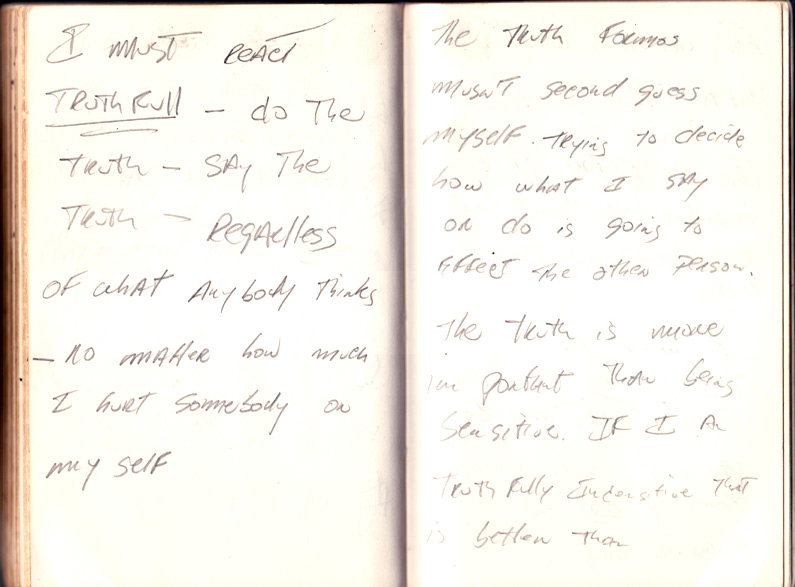 I must react
TRUTHFULL – do The
Truth – SAy The
Truth – RegARlless
OF whAT Anybody Thinks
– no matter how much
I hurt Somebody or
my self
The Truth
musn't second guess
myself. Trying to decide
how what I SAy
or do is going to
Effect the other Person.
The Truth is more
important Than being
Sensitive. IF I Am
Truth Fully Insensitive That
is better Than